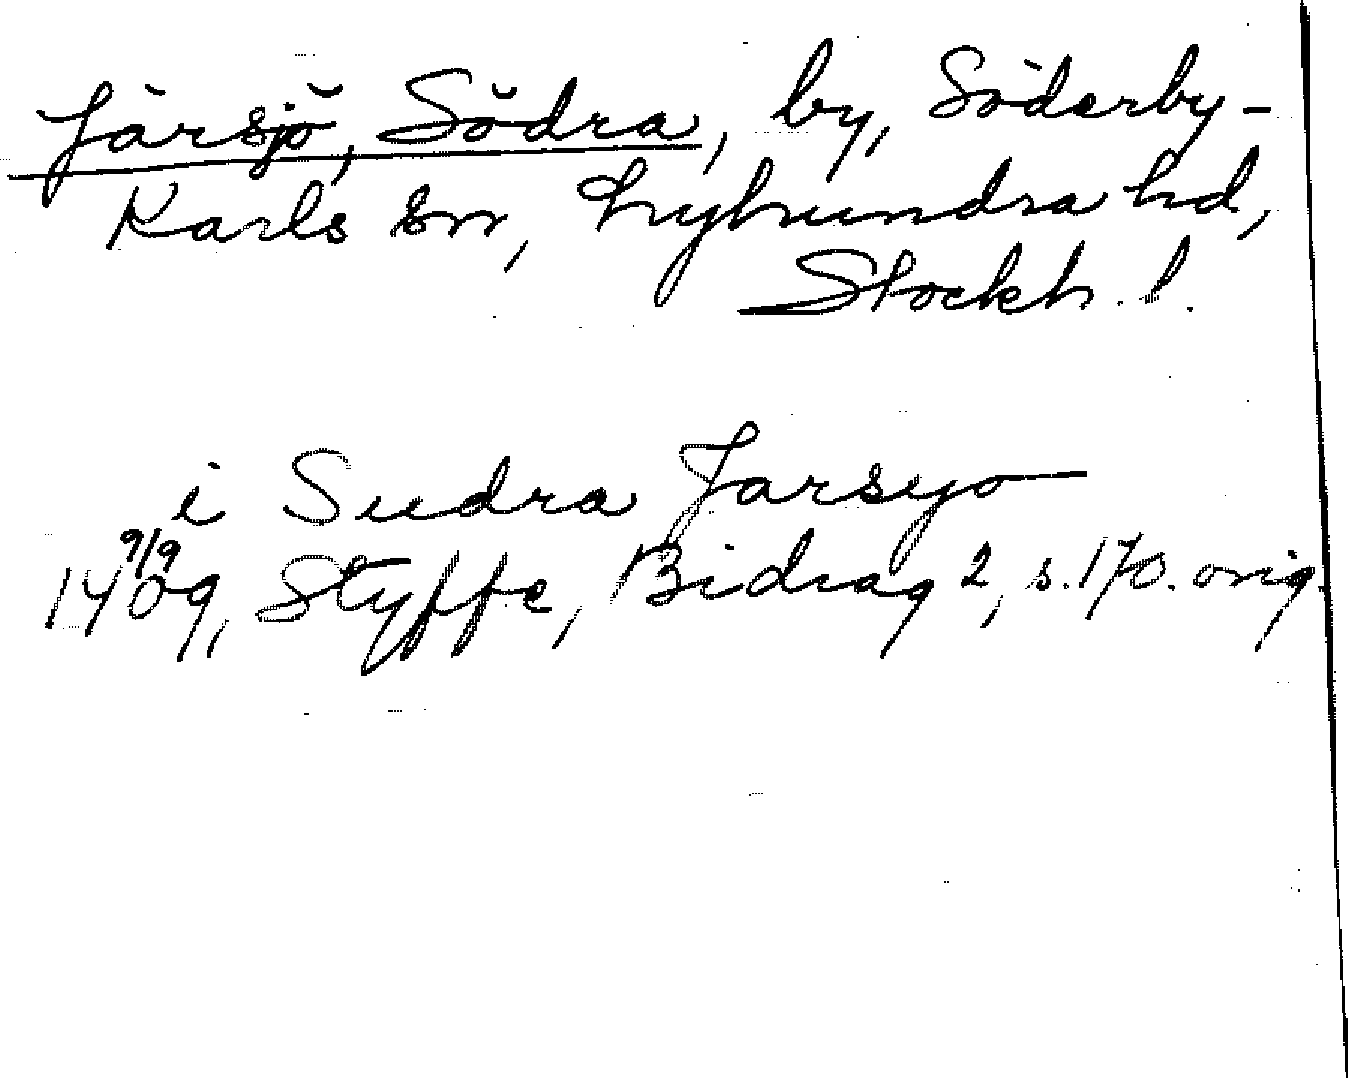 Järsjö, Södra, by, Söderby-
Karls sn, Lyhundra hd,
Stockh. l.
i Sudra Jarsyo
9/9
1409, Styffe, Bidrag 2, s. 170. orig.